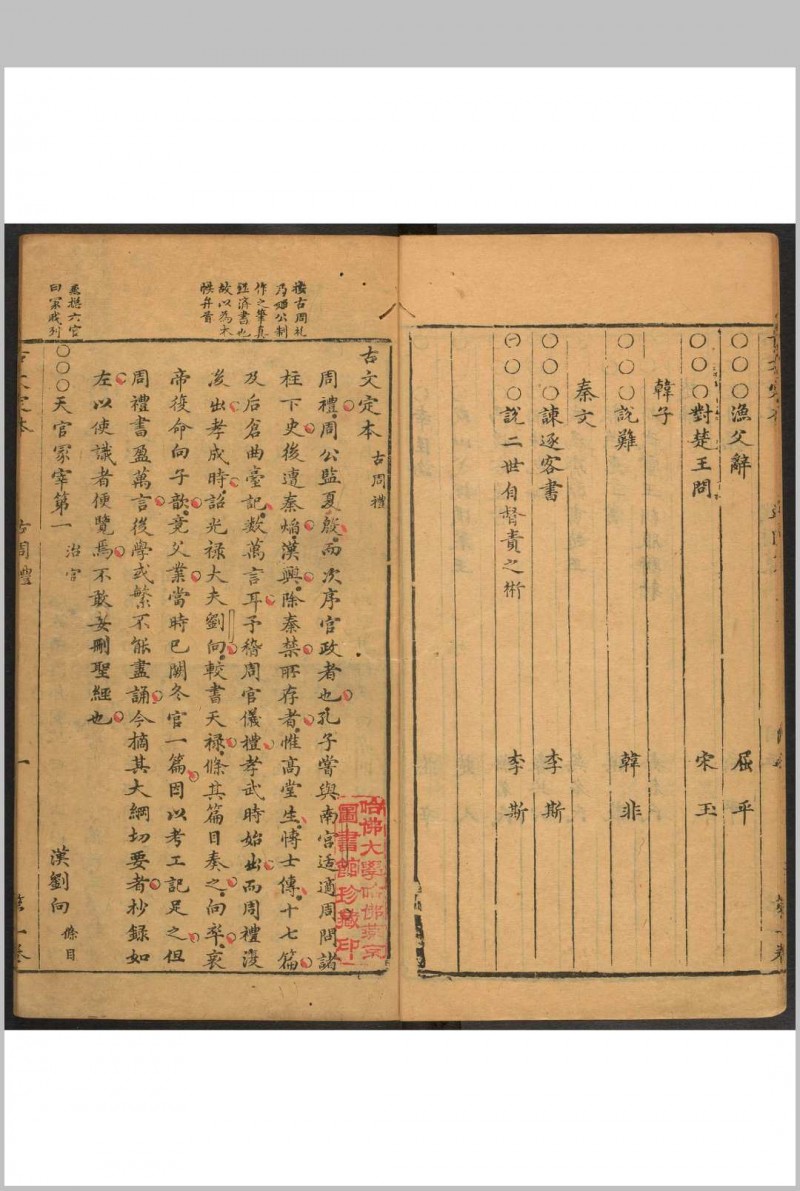 ○○○漁父辭 屈平
○○○對楚王問 宋玉
韓子
○○○說難 韓非
秦文
○○○諫逐客書 李斯
○○○說二世自督責之術 李斯
第一卷
按古周礼
乃姬公制
作之筆真
經濟書也
故以為木
候弁首
古文定本 古周禮
周禮周公監夏殷而次序官政者也孔子嘗與南宮适適周問諸
柱下史後遭秦焰漢興除秦禁所存者惟高堂生博士傳十七篇
及后倉曲臺記數萬言耳予稽周官儀禮孝武時始出而周禮浚
後出孝成時詔光禄大夫劉向較書天禄條其篇目奏之向卒哀
帝復命向子歆竟父業當時已闕冬官一篇因以考工記足之但
周禮書盈萬言後學或繁不能盡誦今摘其大綱切要者抄錄如
左以使識者便覽焉不敢妄刪聖經也
哈佛大學哈佛燕京
圖書館珍藏印
○○○天官冢宰第一 治官 漢劉向 條目
古文定本 古周禮 一 第一卷